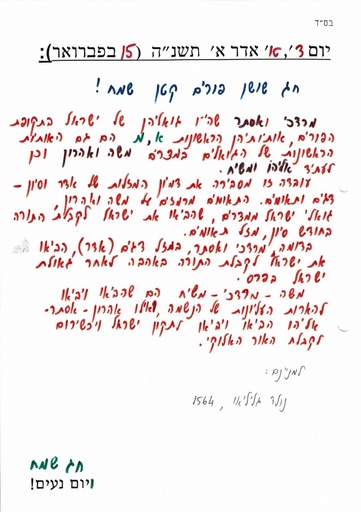 בס״ד
יום ד׳, טו׳ אדר א׳ תשנ״ה (15 בפברואר):
חג שושן פורים קטן שמח!
מרדכי ואסתר שהיו גואליהן של ישראל בתקופת
הפורים, אותיותיהן הראשונות א, מ הם גם האותיות
הראשונות של הגואלים במצרים משה ואהרון וכן
לעתיד אליהו ומשיח.
עובדה זו מסבירה את דמיון המזלות של אדר וסיון -
דגים ותאומים. התאומים מרמזים על משה ואהרון,
גואלי ישראל ממצרים, שהביאו את ישראל לקבלת התורה
בחודש סיון, מזל תאומים.
בדומה, מרדכי ואסתר, במזל דגים (אדר), הביאו
את ישראל לקבלת התורה באהבה לאחר גאולת
ישראל בפרס.
משה - מרדכי - משיח הם שהביאו ויביאו
להארות העליונות של הנשמה, ואילו אהרון - אסתר -
אליהו הביאו ויביאו לתקון ישראל ויכשירום
לקבלת האור האלוקי.
נולד גלילאו, 1564
חג שמח
ויום נעים!